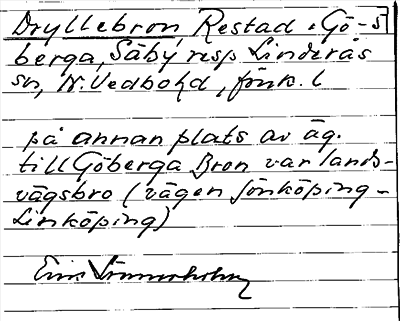 Dryllebron, Restad o Gö-
berga, Säby resp Linderås
sn, N. Vedbo hd, Jönk. l
på annan plats av äg.
till Göberga Bron var lands-
vägsbro (vägen Jönköping -
Linköping)